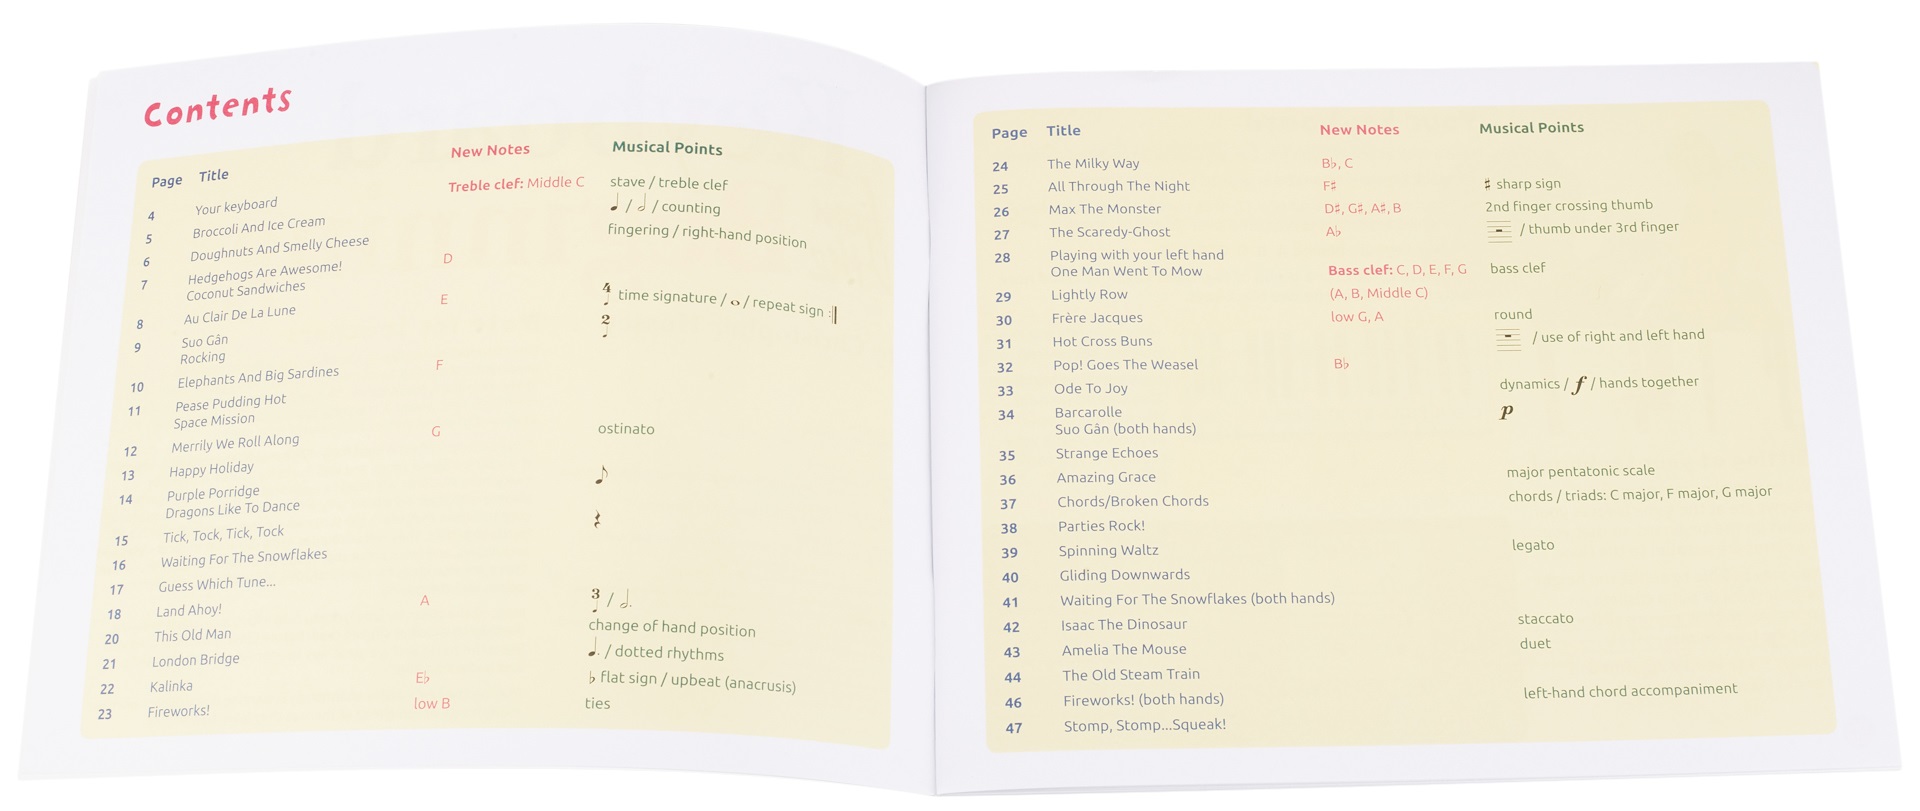 Contents
Page Title New Notes Musical Points
4 Your keyboard Treble clef: Middle C stave / treble clef
5 Broccoli And Ice Cream 𝅘𝅥 / 𝅗𝅥 / counting
6 Doughnuts And Smelly Cheese fingering / right-hand position
7 Hedgehogs Are Awesome! D
Coconut Sandwiches
8 Au Clair De La Lune E 4 time signature / 𝅝 / repeat sign :||
9 Suo Gân 2
Rocking
10 Elephants And Big Sardines F
11 Pease Pudding Hot
Space Mission
12 Merrily We Roll Along G ostinato
13 Happy Holiday
14 Purple Porridge ♪
Dragons Like To Dance
15 Tick, Tock, Tick, Tock 𝄽
16 Waiting For The Snowflakes
17 Guess Which Tune...
18 Land Ahoy! A 3 / 𝅗𝅥.
20 This Old Man change of hand position
21 London Bridge 𝅘𝅥. / dotted rhythms
22 Kalinka E♭ ♭ flat sign / upbeat (anacrusis)
23 Fireworks! low B ties
Page Title New Notes Musical Points
24 The Milky Way B♭, C
25 All Through The Night F♯ ♯ sharp sign
26 Max The Monster D♯, G♯, A♯, B 2nd finger crossing thumb
27 The Scaredy-Ghost A♭ / thumb under 3rd finger
28 Playing with your left hand
One Man Went To Mow Bass clef: C, D, E, F, G bass clef
29 Lightly Row (A, B, Middle C)
30 Frère Jacques low G, A round
31 Hot Cross Buns / use of right and left hand
32 Pop! Goes The Weasel B♭
33 Ode To Joy dynamics / f / hands together
34 Barcarolle p
Suo Gân (both hands)
35 Strange Echoes
36 Amazing Grace major pentatonic scale
37 Chords/Broken Chords chords / triads: C major, F major, G major
38 Parties Rock!
39 Spinning Waltz legato
40 Gliding Downwards
41 Waiting For The Snowflakes (both hands)
42 Isaac The Dinosaur staccato
43 Amelia The Mouse duet
44 The Old Steam Train
46 Fireworks! (both hands) left-hand chord accompaniment
47 Stomp, Stomp...Squeak!